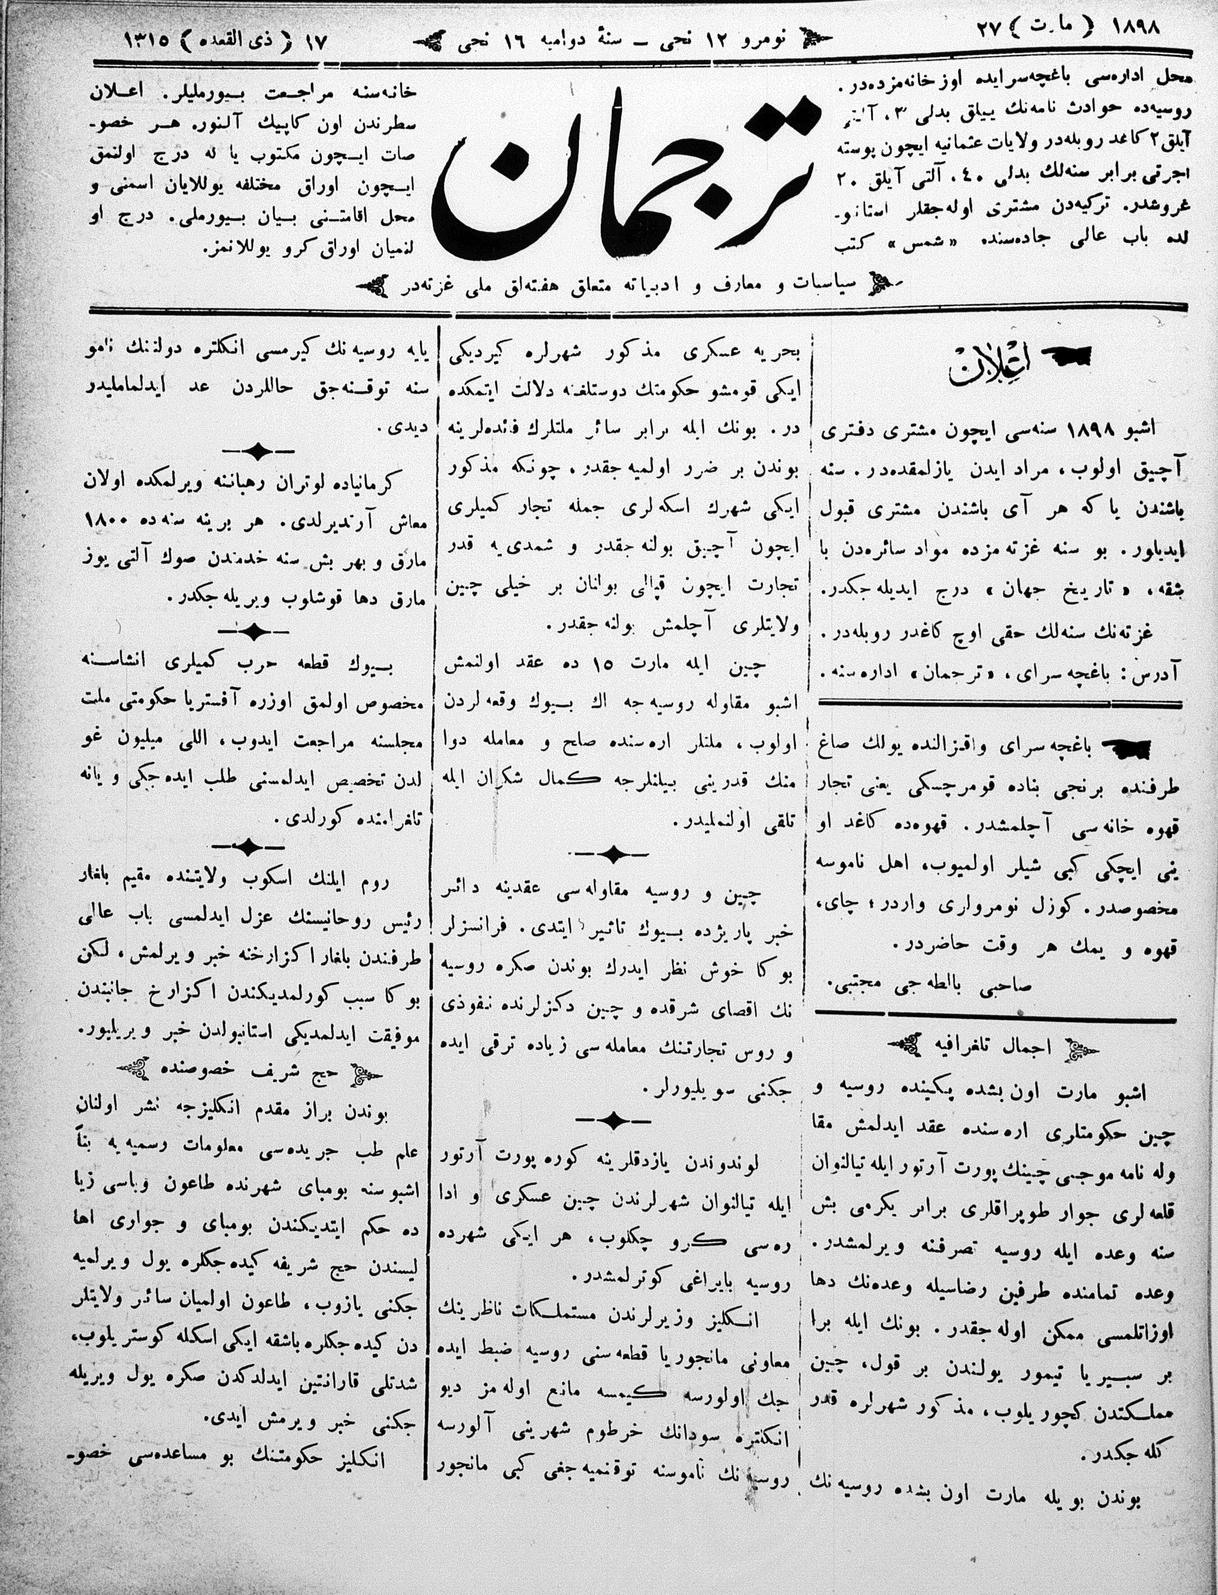 ١٨٩٨ (مارت) ٢٧
نومرو ١٢ نجی – سنۀ دوامیه ١٦ نجی
١٧ (ذی القعده) ١٣١٥
محل اداره‌سی باغچه‌سرایده اوز خانه‌مزده‌در.
روسیه‌ده حوادث نامه‌نك ییللق بدلی ٣، آلتی
آیلق ٢ کاغد روبله‌در ولایات عثمانیه ایچون پوسته
اجرتی برابر سنه‌لك بدلی ٤٠، آلتی آیلق ٢٠
غروشدر. ترکیه‌دن مشتری اوله‌جقلر استانبو-
لده باب عالی جاده‌سنده «شمس» کتب
ترجمان
خانه‌سنه مراجعت بیورملیلر. اعلان
سطرندن اون کاپیك آلنور. هر خصو-
صات ایچون مکتوب یا له درج اولنمق
ایچون اوراق مختلفه یوللایان اسمنی و
محل اقامتنی بیان بیورملی. درج او
لنمیان اوراق کرو یوللانمز.
سیاسیات و معارف و ادبیاته متعلق هفته‌لق ملی غزته‌در
اعلان
اشبو ١٨٩٨ سنه‌سی ایچون مشتری دفتری
آچیق اولوب، مراد ایدن یازلمقده‌در. سنه
باشندن یا که هر آی باشندن مشتری قبول
ایدیلور. بو سنه غزته‌مزده مواد سائره‌دن با
شقه، «تاریخ جهان» درج ایدیله‌جکدر.
غزته‌نك سنه‌لك حقی اوچ کاغدر روبله‌در.
آدرس: باغچه‌سرای، «ترجمان» اداره‌سنه.
باغچه‌سرای واقزالنده یولك صاغ
طرفنده برنجی بناده قومرچسکی یعنی تجار
قهوه خانه‌سی آچلمشدر. قهوه‌ده کاغد او
ینی ایچکی کبی شیلر اولمیوب، اهل ناموسه
مخصوصدر. کوزل نومرولری واردر؛ چای،
قهوه و یمك هر وقت حاضردر.
صاحبی بالطه‌جی مجتبی.
اجمال تلغرافیه
اشبو مارت اون بشده پکینده روسیه و
چین حکومتلری اره‌سنده عقد ایدلمش مقا
وله نامه موجبی چینك پورت آرتور ایله تیالنوان
قلعه‌لری جوار طوپراقلری برابر یکرمی بش
سنه وعده ایله روسیه تصرفنه ویرلمشدر.
وعده تمامنده طرفین رضاسیله وعده‌نك دها
اوزاتلمسی ممکن اوله‌جقدر. بونك ایله برا
بر سبیریا تیمور یولندن بر قول، چین
مملکتندن کچوریلوب، مذکور شهرلره قدر
کله‌جکدر.
بوندن بویله مارت اون بشده روسیه‌نك
بحریه عسکری مذکور شهرلره کیردیکی
ایکی قومشو حکومتك دوستلغنه دلالت ایتمکده
در. بونك ایله برابر سائر ملتلرك فائده‌لرینه
بوندن بر ضرر اولمیه‌جقدر، چونکه مذکور
ایکی شهرك اسکه‌لری جمله تجار کمیلری
ایچون آچیق بولنه‌جقدر و شمدی‌یه قدر
تجارت ایچون قپالی بولنان بر خیلی چین
ولایتلری آچلمش بولنه‌جقدر.
چین ایله مارت ١٥ ده عقد اولنمش
اشبو مقاوله روسیه‌جه اك بیوك وقعه‌لردن
اولوب، ملتلر اره‌سنده صلح و معامله دوا
منك قدرینی بیلنلرجه کمال شکران ایله
تلقی اولنملیدر.
چین و روسیه مقاوله‌سی عقدینه دائر
خبر پاریژده بیوك تاثیر ایتدی. فرانسزلر
بوکا خوش نظر ایدرك بوندن صکره روسیه
نك اقصای شرقده و چین دکزلرنده نفوذی
و روس تجارتنك معامله‌سی زیاده ترقی ایده
جکنی سویلیورلر.
لوندوندن یازدقلرینه کوره پورت آرتور
ایله تیالنوان شهرلرندن چین عسکری و ادا
ره‌سی کرو چکلوب، هر ایکی شهرده
روسیه بایراغی کوترلمشدر.
انکلیز وزیرلرندن مستملکات ناظرینك
معاونی مانجوریا قطعه‌سنی روسیه ضبط ایده
جك اولورسه کیمسه مانع اوله‌مز دیو
انکلتره سودانك خرطوم شهرینی آلورسه
روسیه‌نك ناموسنه توقنمیه‌جغی کبی مانجور
یایه روسیه‌نك کیرمسی انکلتره دولتنك نامو
سنه توقنه‌جق حاللردن عد ایدلماملیدر
دیدی.
کرمانیاده لوتران رهباننه ویرلمکده اولان
معاش آرتدیرلدی. هر برینه سنه‌ده ١٨٠٠
مارق و بهر بش سنه خدمتدن صوك آلتی یوز
مارق دها قوشلوب ویریله‌جکدر.
بیوك قطعه حرب کمیلری انشاسنه
مخصوص اولمق اوزره آفستریا حکومتی ملت
مجلسنه مراجعت ایدوب، اللی میلیون غو
لدن تخصیص ایدلمسنی طلب ایده‌جکی ویانه
تلغرامنده کورلدی.
روم ایلنك اسکوب ولایتنده مقیم بلغار
رئیس روحانیسنك عزل ایدلمسی باب عالی
طرفندن بلغار اکزارخنه خبر ویرلمش، لکن
بوکا سبب کورلمدیکندن اکزارخ جانبندن
موفیقت ایدلمدیکی استانبولدن خبر ویریلیور.
حج شریف خصوصنده
بوندن براز مقدم انکلیزجه نشر اولنان
علم طب جریده‌سی معلومات رسمیه‌یه بناً
اشبو سنه بومبای شهرنده طاعون وباسی زیا
ده حکم ایتدیکندن بومبای و جواری اها
لیسندن حج شریفه کیده‌جکلره یول ویرلمیه
جکنی یازوب، طاعون اولمیان سائر ولایتلر
دن کیده‌جکلره باشقه ایکی اسکله کوستریلوب،
شدتلی قارانتین ایدلدکدن صکره یول ویریله
جکنی خبر ویرمش ایدی.
انکلیز حکومتنك بو مساعده‌سی خصو-